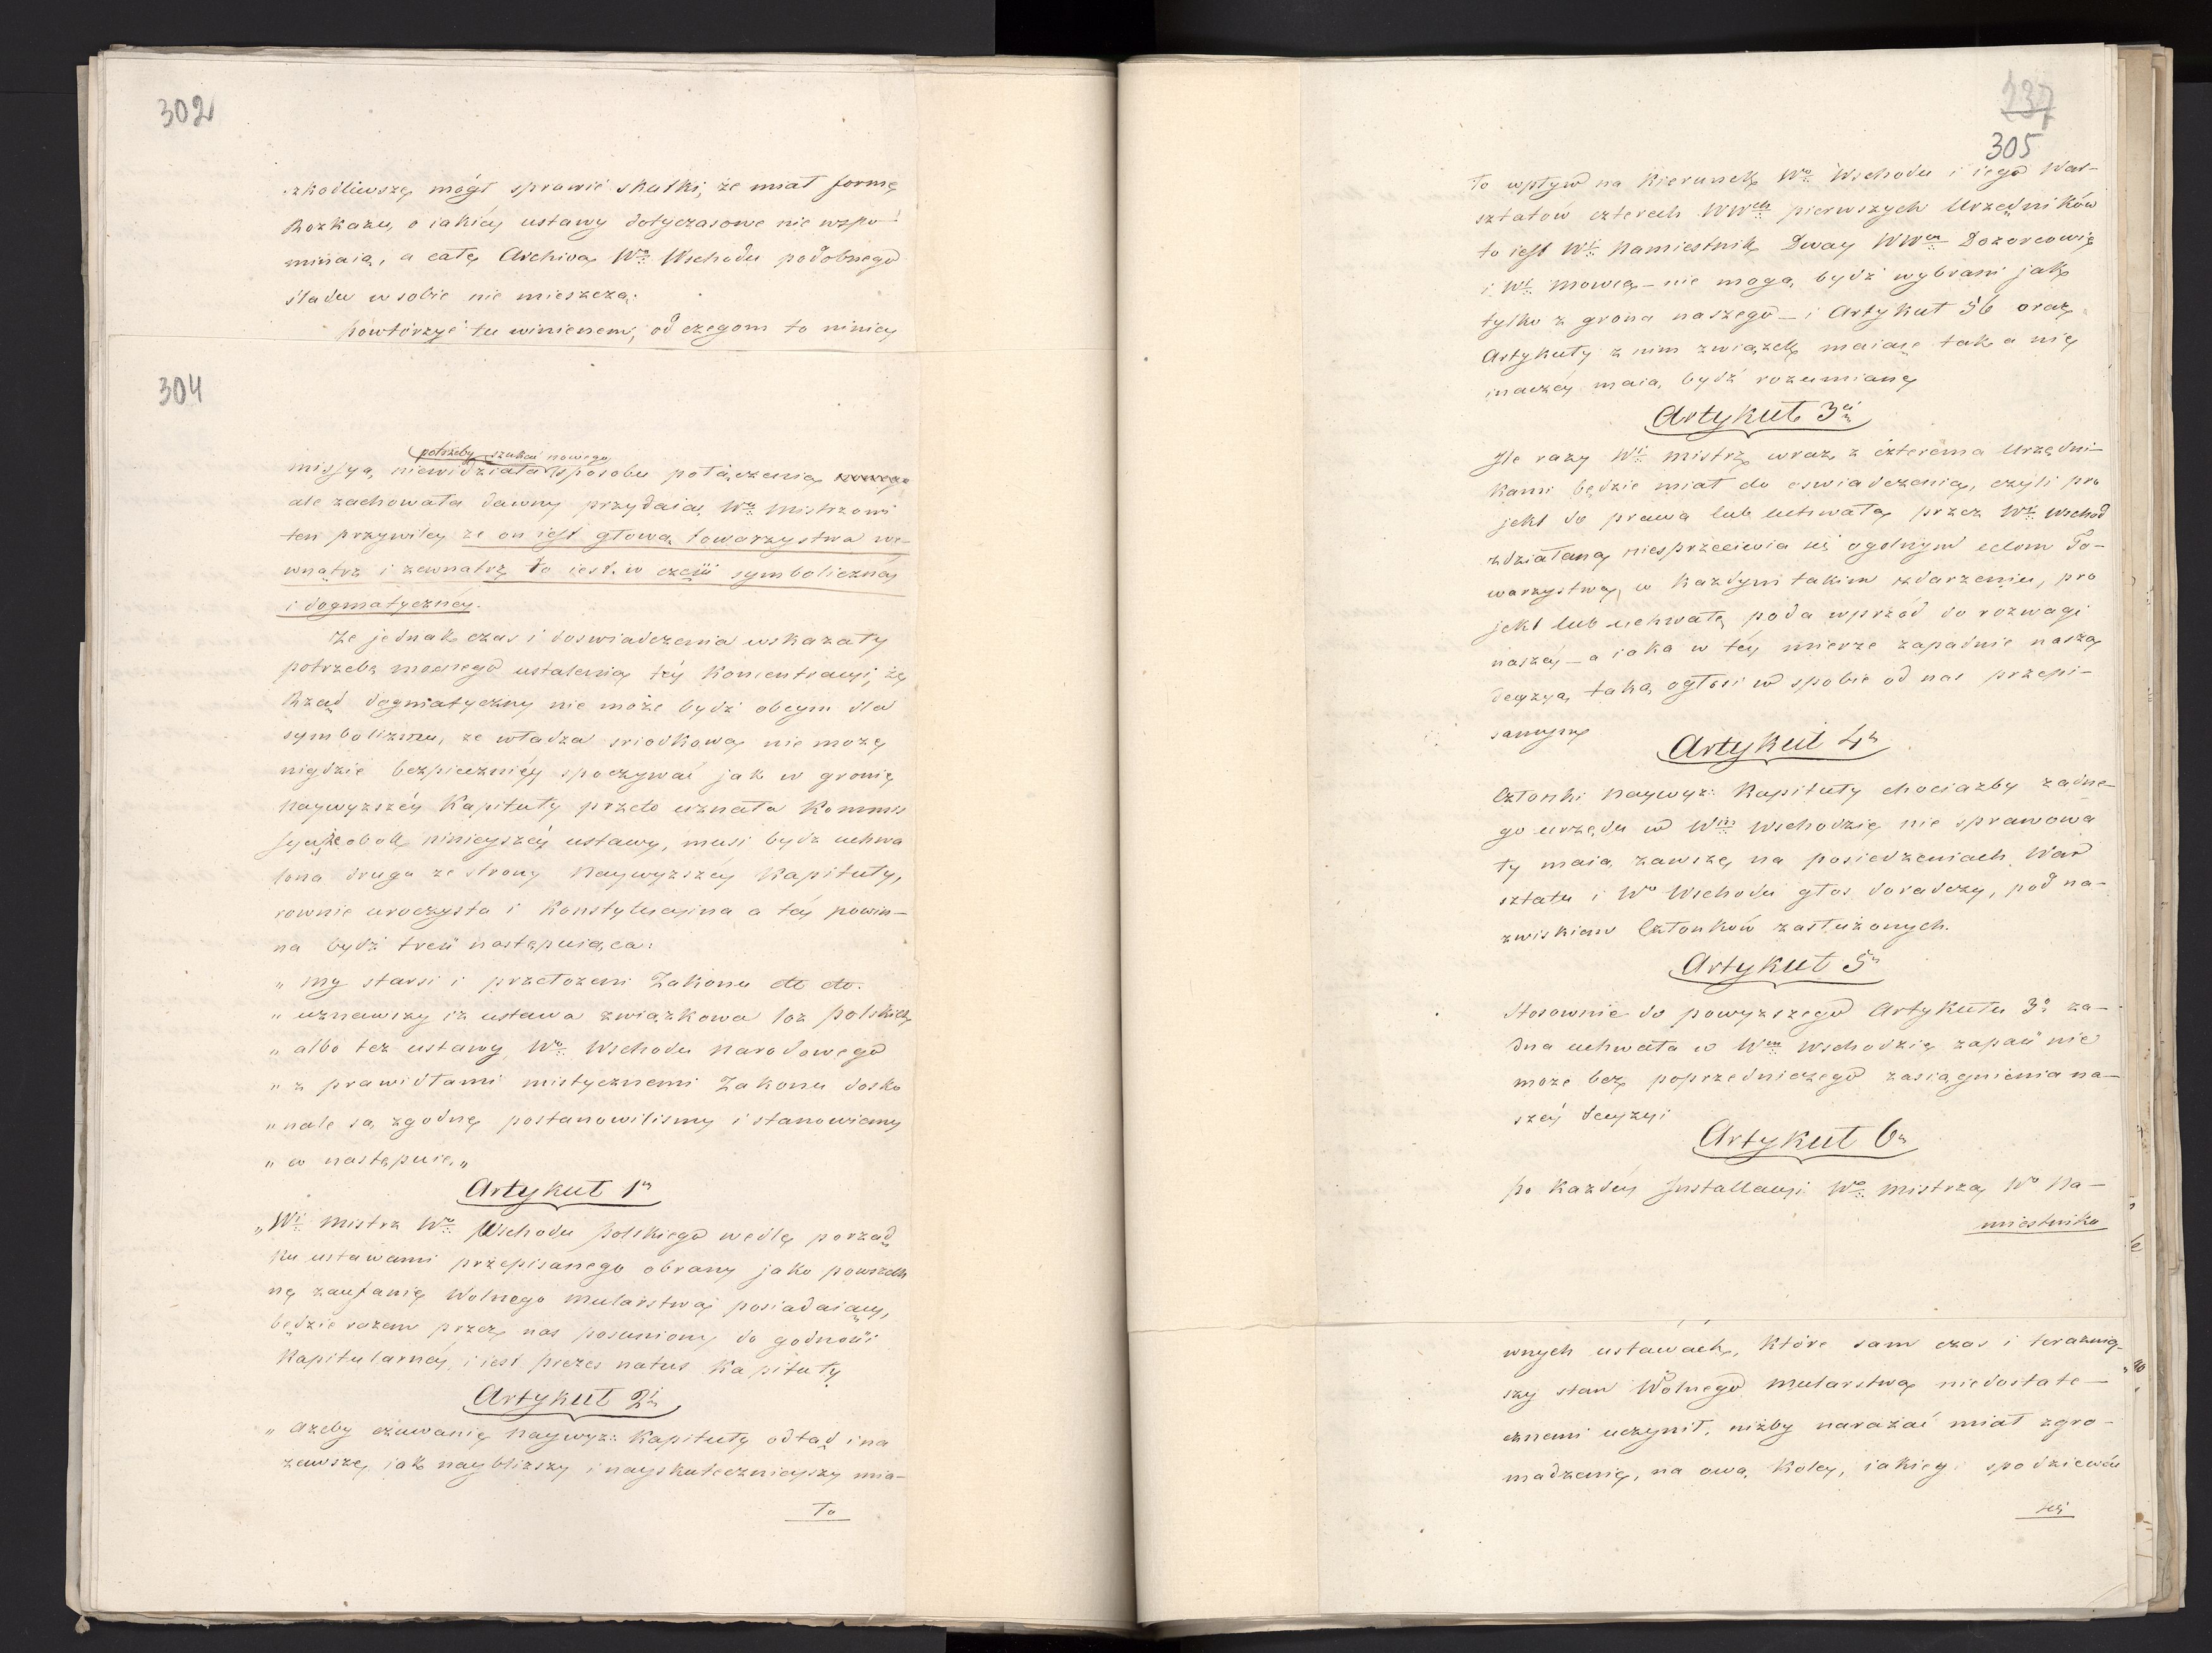 302
szkodliwsze mógł sprawić skutki, że miał formę
Rozkazu, o iakiey ustawy dotyczasowe nie wspo-
minaią, a całe Archiva Wo Wschodu podobnego
śladu w sobie nie mieszczą.
powtórzyć tu winienem, od czegom to niniey
304
potrzeby szukać nowego
missya, niewidziała sposobu połączenia nowego
ale zachowała dawny przydaiąc Wu Mistrzowi
ten przywiley że on iest głową towarzystwa we-
wnątrz i zewnątrz to iest. w części symboliczney
i dogmatyczney.
że jednak czas i doswiadczenia wskazały
potrzebę mocnego ustalenia téy Koncentracyi, że
Rząd dogmatyczny nie może bydź obcym dla
symbolizmu, że władza sriodkowa nie może
nigdzie bezpieczniéy spoczywać jak w gronie
naywyższéy Kapituły przeto uznała Kommis
sya, że obok ninieyszéy ustawy, musi bydź uchwa
lona druga ze strony Naywyższéy Kapituły,
rownie uroczysta i Konstytucyina a téy powin-
na bydź treść następuiąca:
" My starsi i przełożeni Zakonu etc etc.
" uznawszy iż ustawa związkowa loż polskich
" albo też ustawy Wo Wschodu Narodowego
" z prawidłami mistycznemi Zakonu dosko
" nale są zgodne postanowiliśmy i stanowiemy
" co następuie."
Artykuł 1n
" Wi Mistrz Wo Wschodu polskiego wedle porząd
ku ustawami przepisanego obrany jako powszech
ne zaufanie Wolnego Mularstwa posiadaiący,
będzie razem przez nas posuniony do godności
Kapitularnéy, i iest prezes natus Kapituły
Artykuł 2i
" Ażeby czuwanie Naywyz: Kapituły odtąd i na
zawsze, iak naybliższy i nayskutecznieyszy mia-
To
237
305
To wpływ na Kierunek Wo Wschodu i iego War-
sztatów czterech WWch pierwszych Urzędników
to iest Wi Namiestnik Dway WWni Dozorcowie
i Wi Mowca – nie mogą bydź wybrani jak
tylko z grona naszego – i Artykuł 56 oraz
Artykuły z nim związek maiące tak a nie
inaczéy maią bydź rozumiane
Artykuł 3ci
Ile razy Wi Mistrz wraz z czterema Urzędni-
kami będzie miał do oswiadczenia, czyli pro
jekt do prawa lub uchwała przez Wi Wschod
zdziałana niesprzeciwia się ogolnym celom To-
warzystwa, w Każdym takim zdarzeniu, pro
jekt lub uchwałę poda wprzód do rozwagi
naszéy – a iaka w téy mierze zapadnie nasza
decyzya, taką ogłosi w sposobie od nas przepi-
sanym
Artykuł 4n
Członki Naywyz: Kapituły chociażby żadne-
go urzędu w Wm Wschodzie nie sprawowa
ły maią zawsze na posiedzeniach War
sztatu i Wo Wschodu głos doradczy, pod na-
zwiskiem Członków zasłużonych.
Artykuł 5n
Stosownie do powyższego Artykułu 3o ża-
dna uchwała w Wm Wschodzie zapaść nie
może bez poprzedniczego zasiągnienia na-
széy decyzyi
Artykuł 6n
po każdéy Installacyi Wo Mistrza, Wo Na-
miestnika
wnych ustawach, które sam czas i teraźniey-
szy stan Wolnego Mularstwa niedostate-
cznemi uczynił, niżby narażać miał zgro-
madzenie, na ową Koley, iakiey spodziewać
się